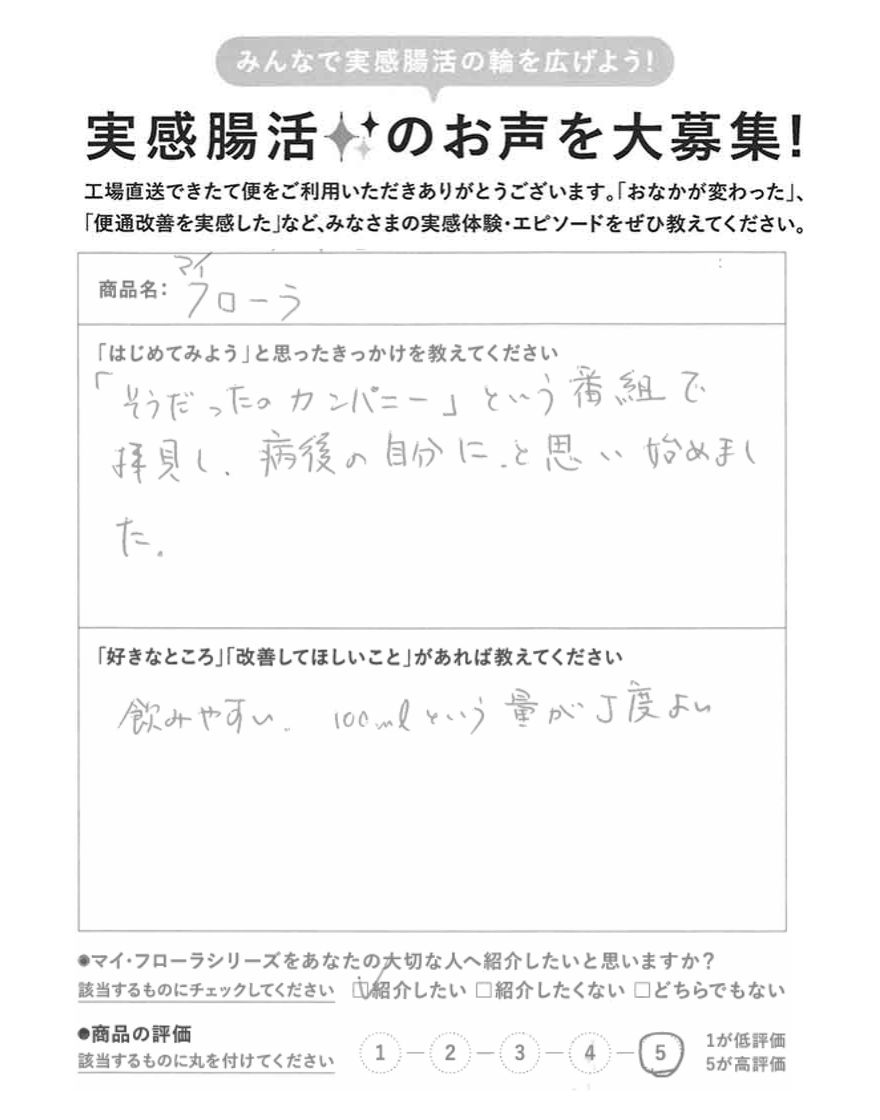 みんなで実感腸活の輪を広げよう!
実感腸活のお声を大募集!
工場直送できたて便をご利用いただきありがとうございます。「おなかが変わった」、
「便通改善を実感した」など、みなさまの実感体験・エピソードをぜひ教えてください。
マイ
商品名: フローラ
「はじめてみよう」と思ったきっかけを教えてください
「そうだったのカンパニー」という番組で
拝見し、病後の自分に、と思い始めまし
た。
「好きなところ」「改善してほしいこと」があれば教えてください
飲みやすい。100mlという量が丁度よい
●マイ・フローラシリーズをあなたの大切な人へ紹介したいと思いますか?
該当するものにチェックしてください ☑紹介したい □紹介したくない □どちらでもない
●商品の評価
該当するものに丸を付けてください 1 - 2 - 3 - 4 - 5
1が低評価
5が高評価